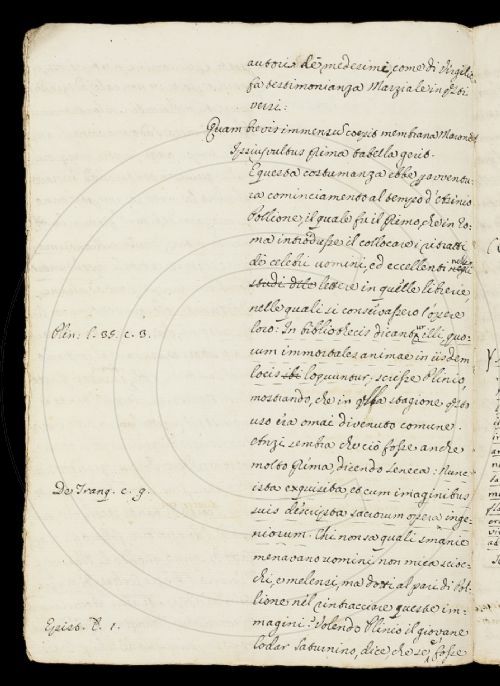 autori de medesimi, come di Virgilio
fa testimonianza Marziale in q.sti
versi:
Quam brevis immensum coepit membrana Maronem
Ipsius vultus prima tabella gerit.
E questa costumanza ebbe p avventu:
ra cominciamento al tempo d'Asinio
Pollione, il quale fu il primo, che in Ro:
ma introdusse il collocare i ritratti
de celebri uomini, ed eccellenti nelle
lettere in quelle librerie,
nelle quali si conservassero l'opere
loro: In bibliothecis dicantur illi, quo:
rum immortales animae in iisdem
locis loquuntur, scrisse Plinio,
Plin: l. 35. c. 3.
mostrando, che in q.lla stagione q.sto
uso era omai divenuto comune.
Anzi sembra che ciò fosse anche
molto prima, dicendo Seneca: Nunc
ista exquisita, et cum imaginibus
De Tranq. c. 9.
suis descripta sacrorum opera inge:
niorum. Chi non sa quali smanie
menavano uomini, non mica scioc:
chi, e melensi, ma dotti al pari di Pol:
lione nel rintracciare queste im:
magini? Volendo Plinio il giovane
Epist. 1.
lodar Saturnino, dice, che se fosse